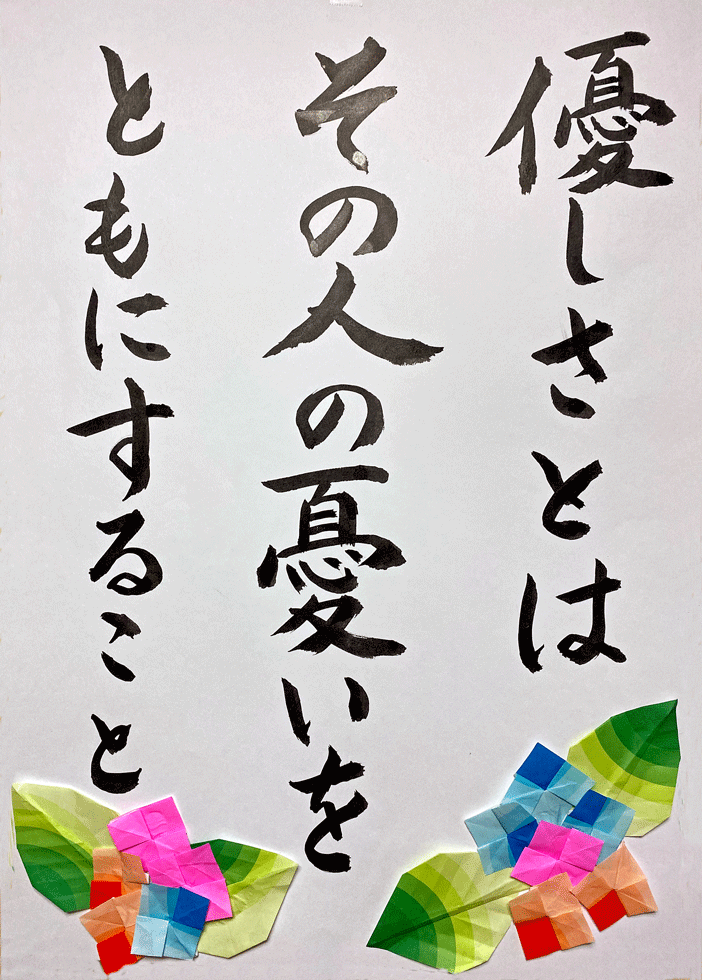 優しさとは
その人の憂いを
ともにすること